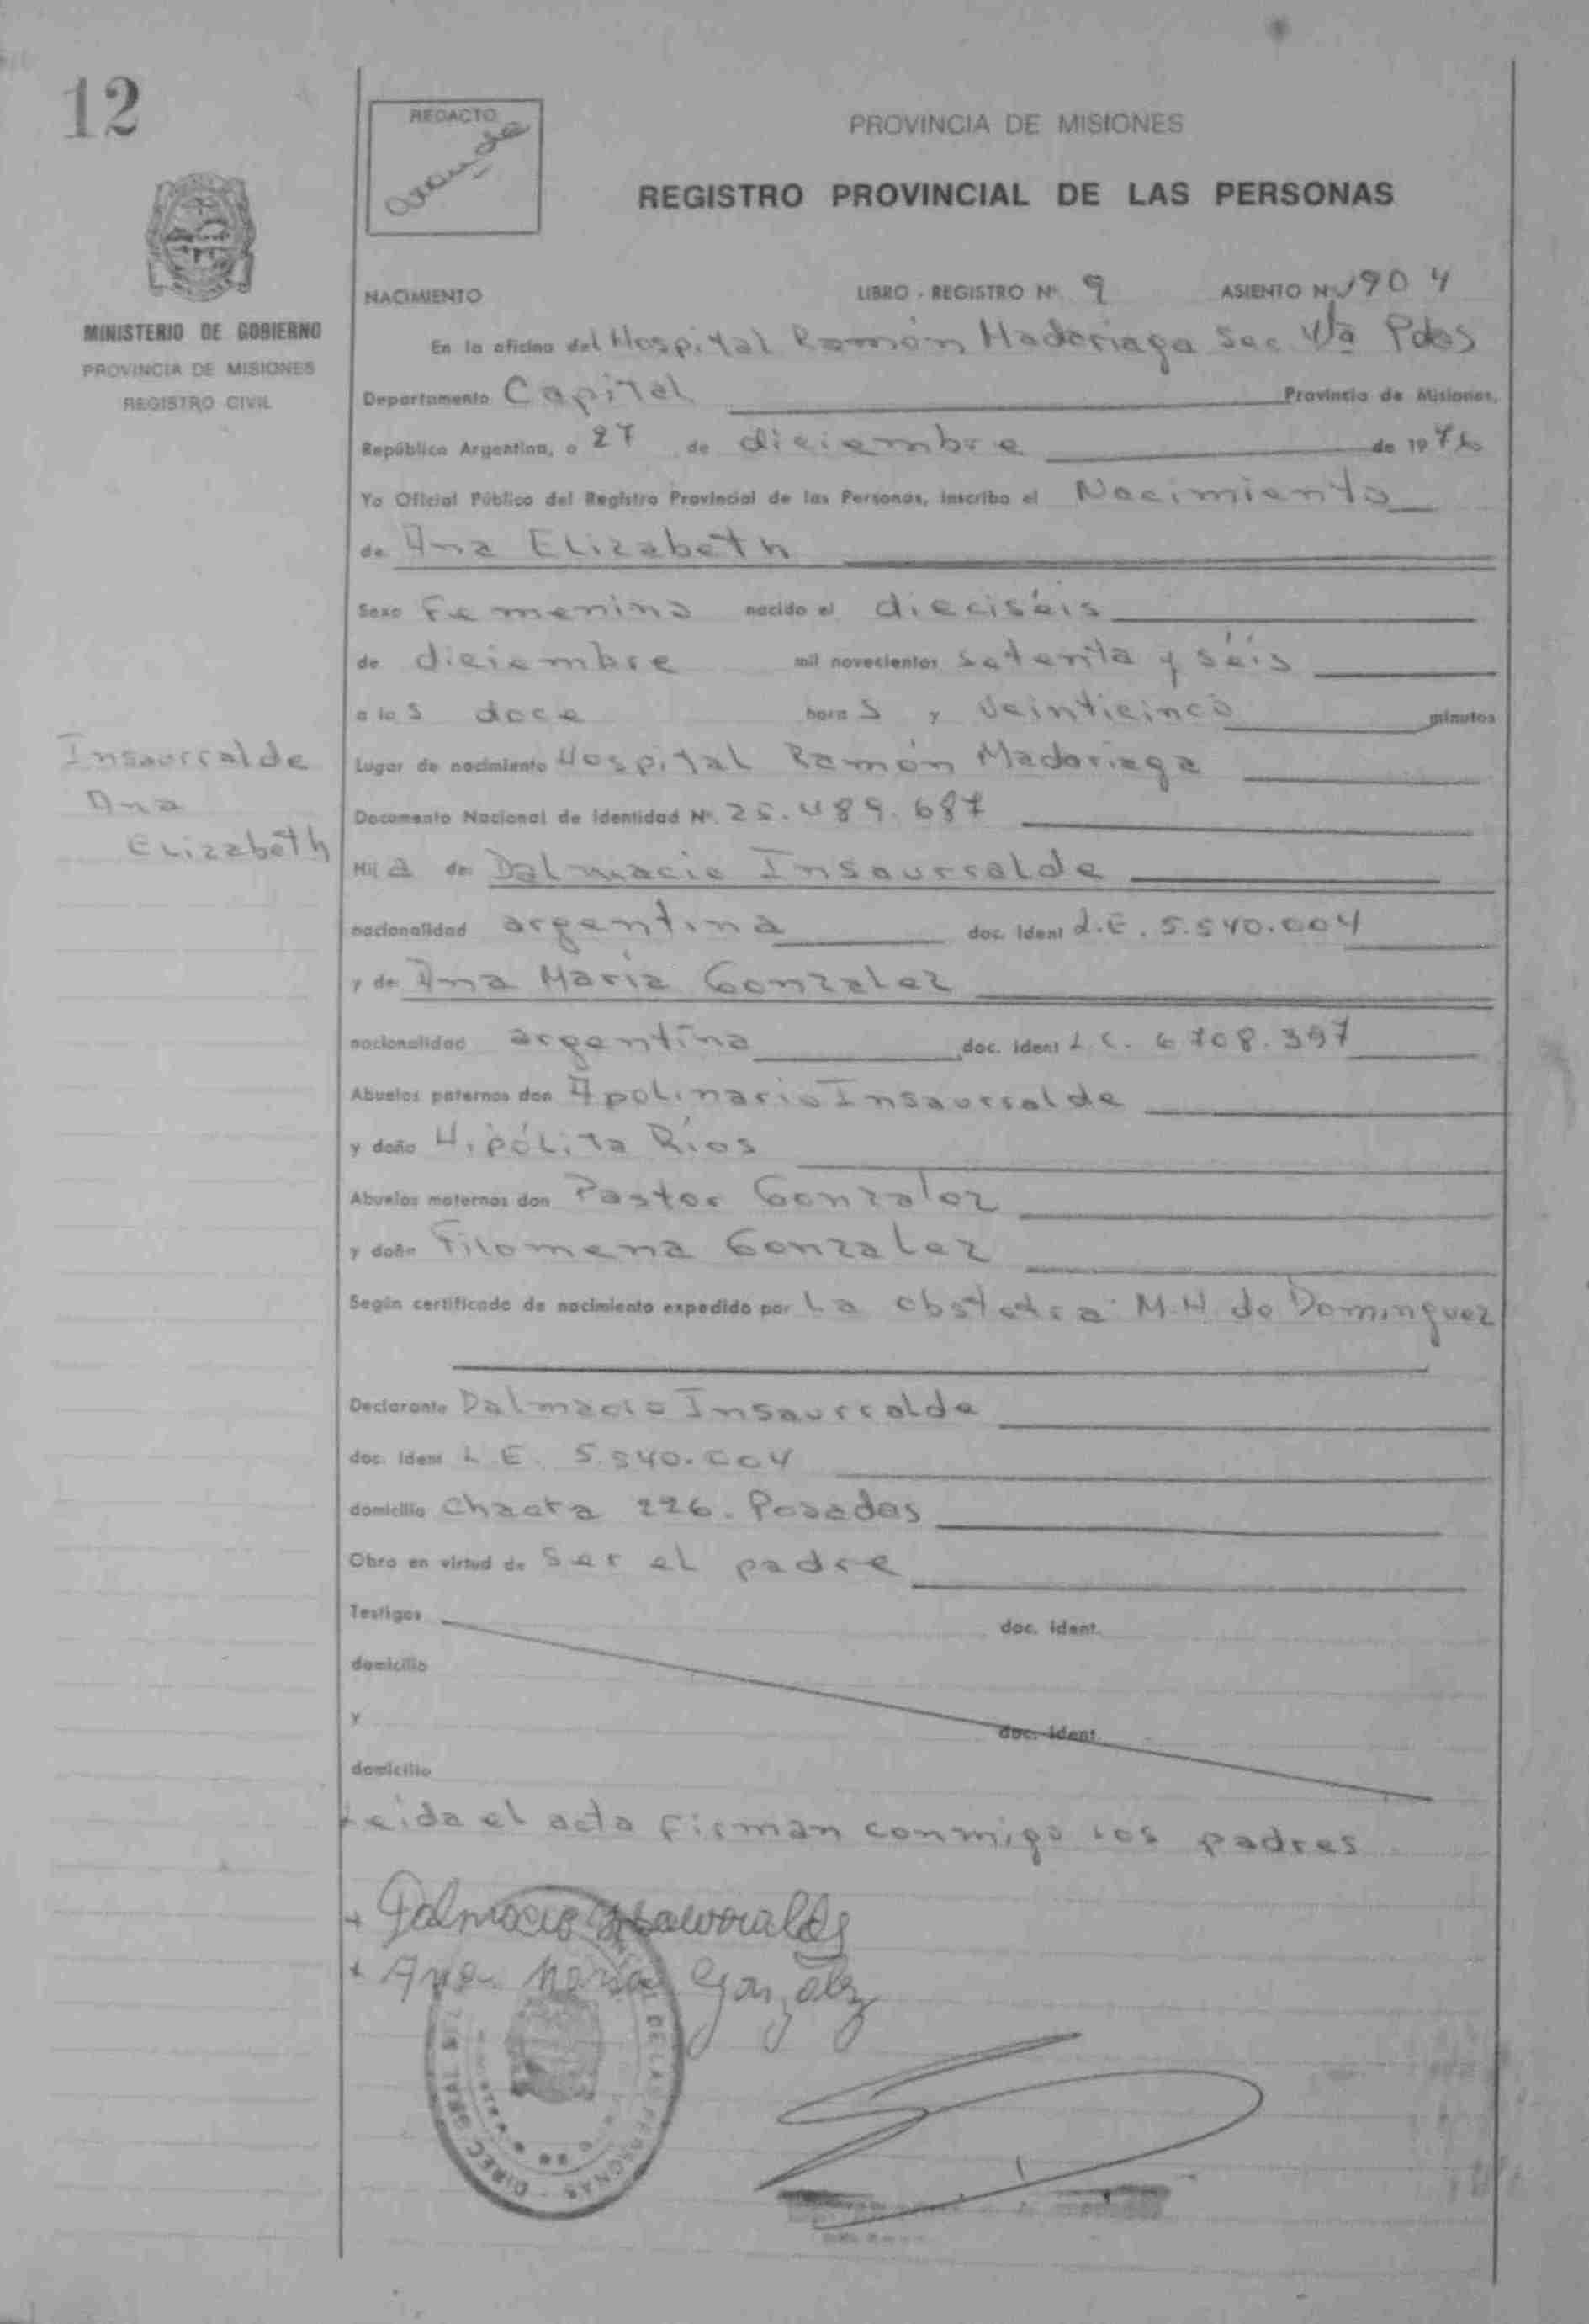 12
REDACTO
PROVINCIA DE MISIONES
REGISTRO PROVINCIAL DE LAS PERSONAS
MINISTERIO DE GOBIERNO
PROVINCIA DE MISIONES
REGISTRO CIVIL
NACIMIENTO LIBRO - REGISTRO Nº 9 ASIENTO Nº 1904
En la oficina del Hospital Ramón Madariaga Sec 4ta Pdas
Departamento Capital Provincia de Misiones,
República Argentina, a 27 de diciembre de 1976
Yo Oficial Público del Registro Provincial de las Personas, inscribo el Nacimiento
de Ana Elizabeth
Sexo Femenino nacido el dieciséis
de diciembre mil novecientos setenta y séis
a las doce horas y veinticinco minutos
Insaurralde
Ana
Elizabeth
Lugar de nacimiento Hospital Ramón Madariaga
Documento Nacional de identidad Nº 25.489.687
Hija de Dalmacio Insaurralde
nacionalidad argentina doc. ident L.E. 5.540.004
y de Ana María Gonzalez
nacionalidad argentina doc. ident L C. 6 708.397
Abuelos paternos don Apolinario Insaurralde
y doña Hipólita Ríos
Abuelos maternos don Pastor Gonzalez
y doña Filomena Gonzalez
Según certificado de nacimiento expedido por La obstetra M.H. de Dominguez
Declarante Dalmacio Insaurralde
doc. ident L E. 5.540.004
domicilio Chacra 226. Posadas
Obra en virtud de Ser el padre
Testigos doc. ident.
domicilio
y doc. ident.
domicilio
Leida el acta firman conmigo los padres
+ Dalmacio Insaurralde
+ Ana Maria Gonzalez
DE LAS PERSONAS - DIREC GRAL